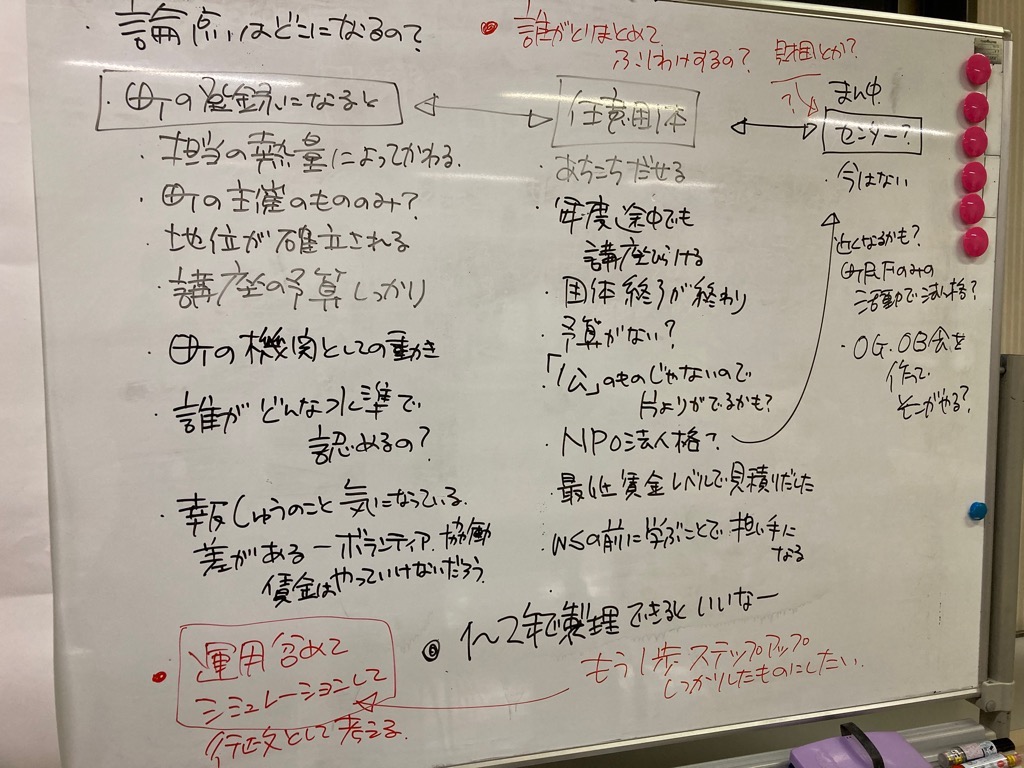 ・論点はどこになるの?
・誰がとりまとめて
ふりわけするの?
財団とか?
?
まん中
・町の登録になると
任意団体
センター?
・担当の熱量によってかわる.
・町の主催のもののみ?
・地位が確立される
・講座の予算しっかり
・町の機関としての動き
・誰がどんな水準で
認めるの?
・報しゅうのこと気になっている.
差がある―ボランティア.協働
賃金はやっていけないだろう.
・あちこちだせる
・年度途中でも
講座ひらける
・団体終了が終わり
・予算がない?
・「公」のものじゃないので
片よりがでるかも?
・NPO法人格?
・最低賃金レベルで見積りだした
・WSの前に学ぶことで担い手に
なる
・今はない
・近くなるかも?
活動で法人格?
・OG.OB会を
作って
そこがやる?
◎ 1〜2年で製理できるといいなー
もう1歩ステップアップ
しっかりしたものにしたい.
・運用含めて
シミュレーションして
行政として考える.